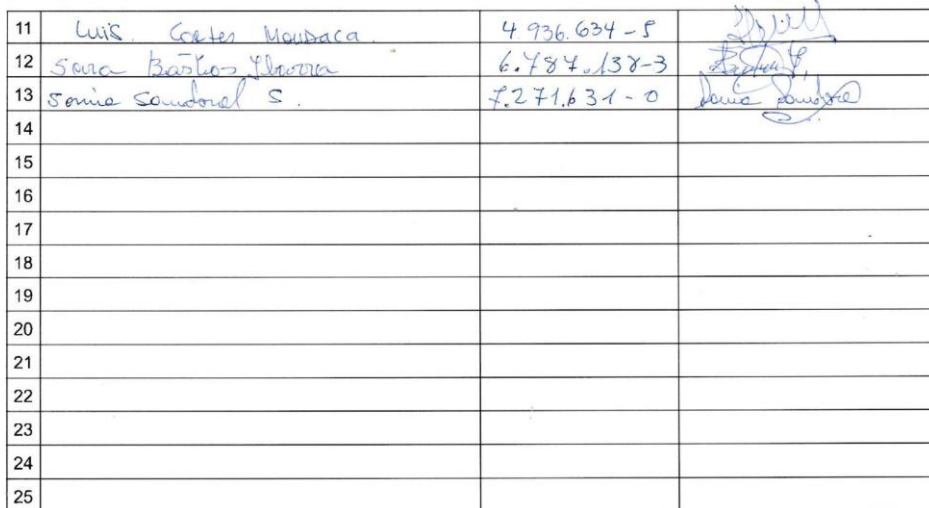 11 Luis. Cortes Moudaca. 4.936.634-5
12 Sara Bastios Ybarra 6.787.138-3
13 Sonia Sandoval S. 7.271.631-0 Sonia Sandoval
14
15
16
17
18
19
20
21
22
23
24
25